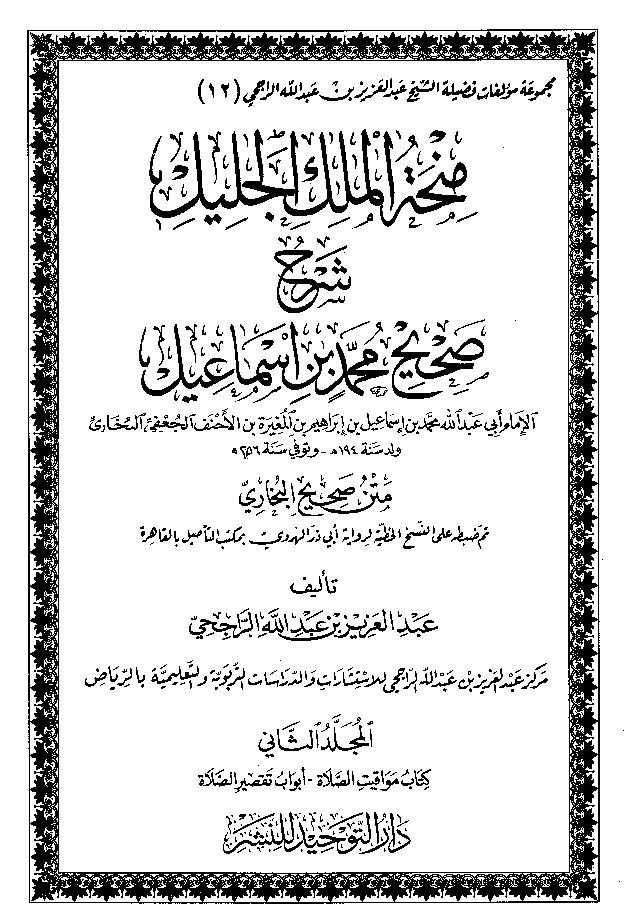 مجموعة مؤلفات فضيلة الشيخ عبد العزيز بن عبد الله الراجحي (١٢)
منحة الملك الجليل
شرح
صحيح محمد بن إسماعيل
الإمام أبي عبد الله محمد بن إسماعيل بن إبراهيم بن المغيرة بن الأحنف الجعفي البخاري
ولد سنة ١٩٤هـ - وتوفي سنة ٢٥٦هـ
متن صحيح البخاري
تم ضبطه على النسخ الخطية لرواية أبي ذر الهروي بمكتب التأصيل بالقاهرة
تأليف
عبد العزيز بن عبد الله الراجحي
مركز عبد العزيز بن عبد الله الراجحي للاستشارات والدراسات التربوية والتعليمية بالرياض
المجلد الثاني
كتاب مواقيت الصلاة - أبواب تقصير الصلاة
دار التوحيد للنشر